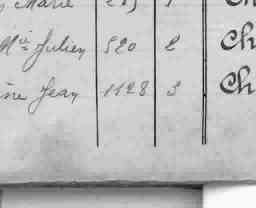 Marie 285 1
Mie Julien 520 2 Ch
ne Jean 1128 3 Ch